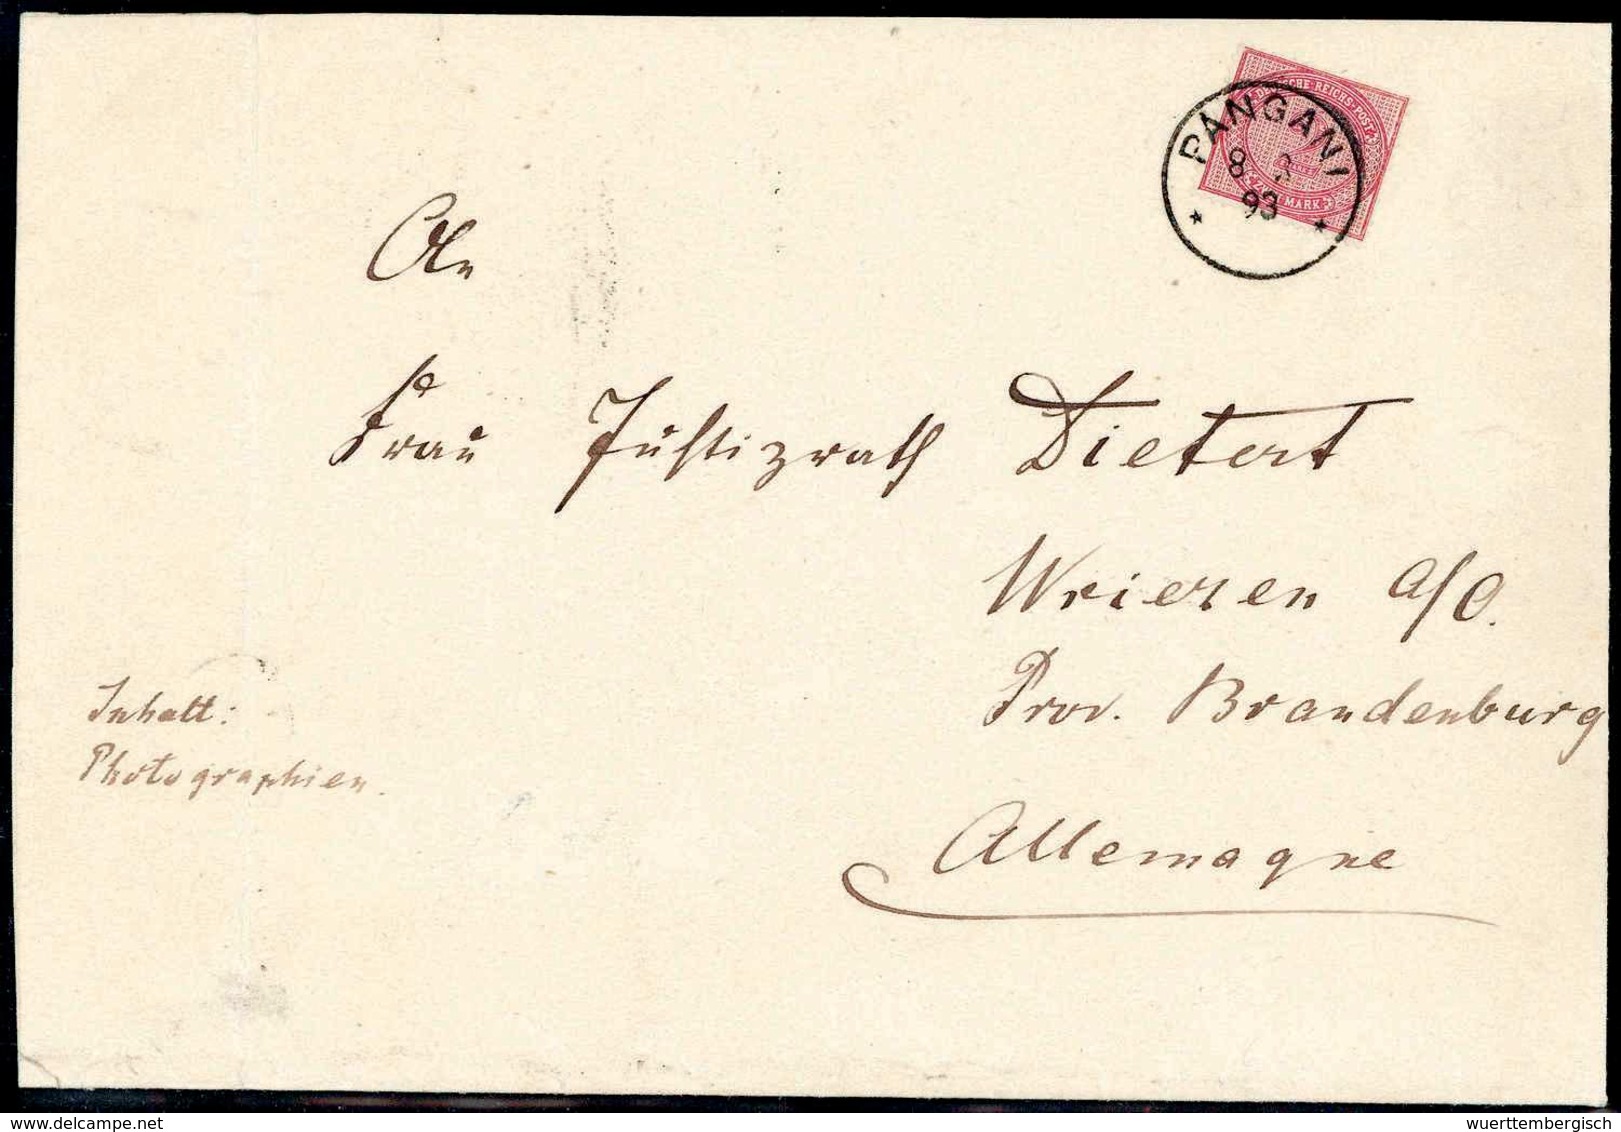 DEUTSCHE REICHS-POST
MARK
PANGANI
8
93
An
Frau Justizrath Dietert
Wriezen a/O.
Prov. Brandenburg
Allemagne
Inhalt:
Photographien.
www.delcampe.net
wuerttembergisch